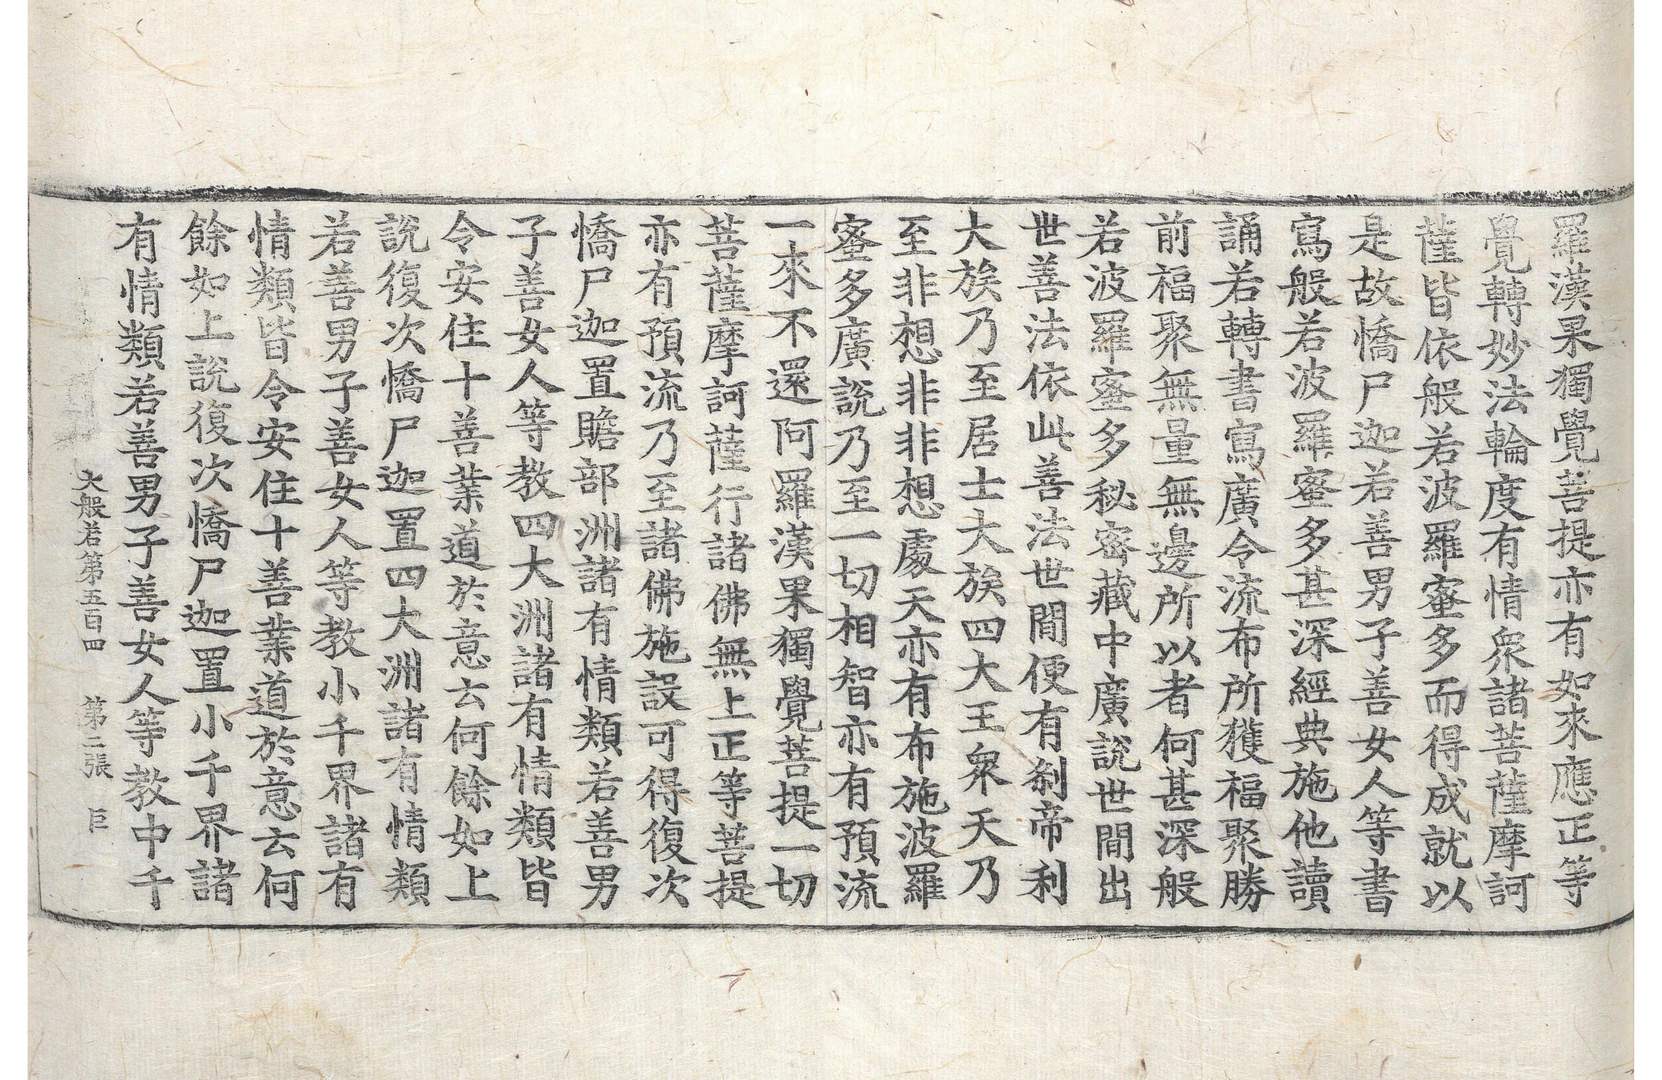 羅漢果獨覺菩提亦有如來應正等
覺轉妙法輪度有情衆諸菩薩摩訶
薩皆依般若波羅蜜多而得成就以
是故憍尸迦若善男子善女人等書
寫般若波羅蜜多甚深經典施他讀
誦若轉書寫廣令流布所獲福聚勝
前福聚無量無邊所以者何甚深般
若波羅蜜多秘密藏中廣說世間出
世善法依此善法世間便有刹帝利
大族乃至居士大族四大王衆天乃
至非想非非想處天亦有布施波羅
蜜多廣說乃至一切相智亦有預流
一來不還阿羅漢果獨覺菩提一切
菩薩摩訶薩行諸佛無上正等菩提
亦有預流乃至諸佛施設可得復次
憍尸迦置贍部洲諸有情類若善男
子善女人等教四大洲諸有情類皆
令安住十善業道於意云何餘如上
說復次憍尸迦置四大洲諸有情類
若善男子善女人等教小千界諸有
情類皆令安住十善業道於意云何
餘如上說復次憍尸迦置小千界諸
有情類若善男子善女人等教中千
大般若第五百四 第二張 巨